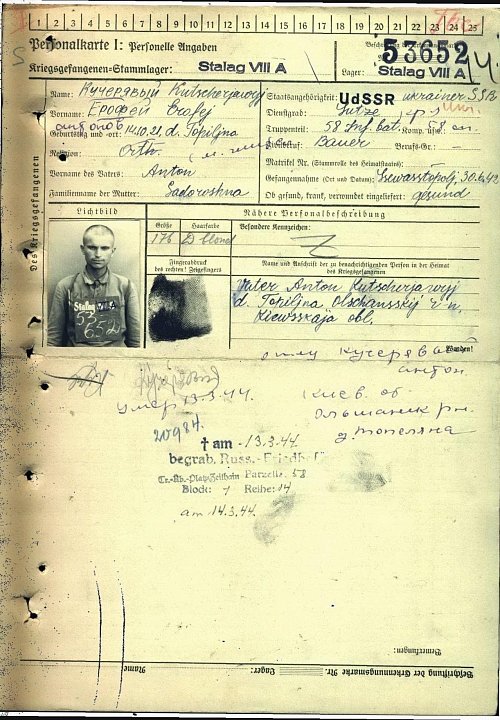 1 2 3 4 5 6 7 8 9 10 11 12 13 14 15 16 17 18 19 20 21 22 23 24 25
Personalkarte I: Personelle Angaben
Kriegsgefangenen-Stammlager: Stalag VIII A
53652
Lager: Stalag VIII A
Des Kriegsgefangenen
Name: Кучерявый Kutscherjawyj
Vorname: Ерофей Erofej
Антонов
Geburtstag und -ort: 14.10.21, d. Topiljna
Religion: Orth.
Vorname des Vaters: Anton
Familienname der Mutter: Sadoroshna
Staatsangehörigkeit: UdSSR ukrainer
Dienstgrad:
Truppenteil: 58 Inf. bat. Komp. usw.:
Bauer Berufs-Gr.:
Matrikel Nr. (Stammrolle des Heimatstaates):
Gefangennahme (Ort und Datum): Sewastopolj, 30.6.42
Ob gesund, krank, verwundet eingeliefert: gesund
Lichtbild
Nähere Personalbeschreibung
Größe Haarfarbe
176 D-blond
Besondere Kennzeichen:
Fingerabdruck
des rechten! Zeigefingers
Name und Anschrift der zu benachrichtigenden Person in der Heimat
des Kriegsgefangenen
Stalag VIII A
Vater Anton Kutscherjawyj
d. Topiljna Olschansskij r-n,
Kiewsskaja obl.
Wenden!
отцу Кучерявый
Антон
Киев. об
Ольшаник рн.
д. Топеляна
умер 13.3.44.
20984.
† am -13.3.44
begrab. Russ.-Friedhof
Tr.-Üb.-Platz Zeithain Parzelle 58
Block: 7 Reihe: 14
am 14.3.44.
Bemerkungen:
Beschriftung der Erkennungsmarke Nr.
Lager:
Name: